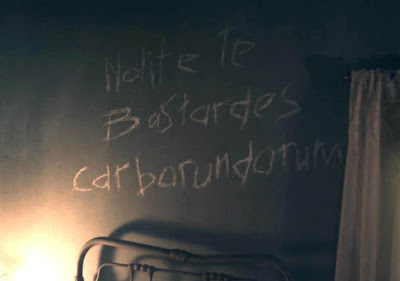 Nolite Te
Bastardes
carborundorum